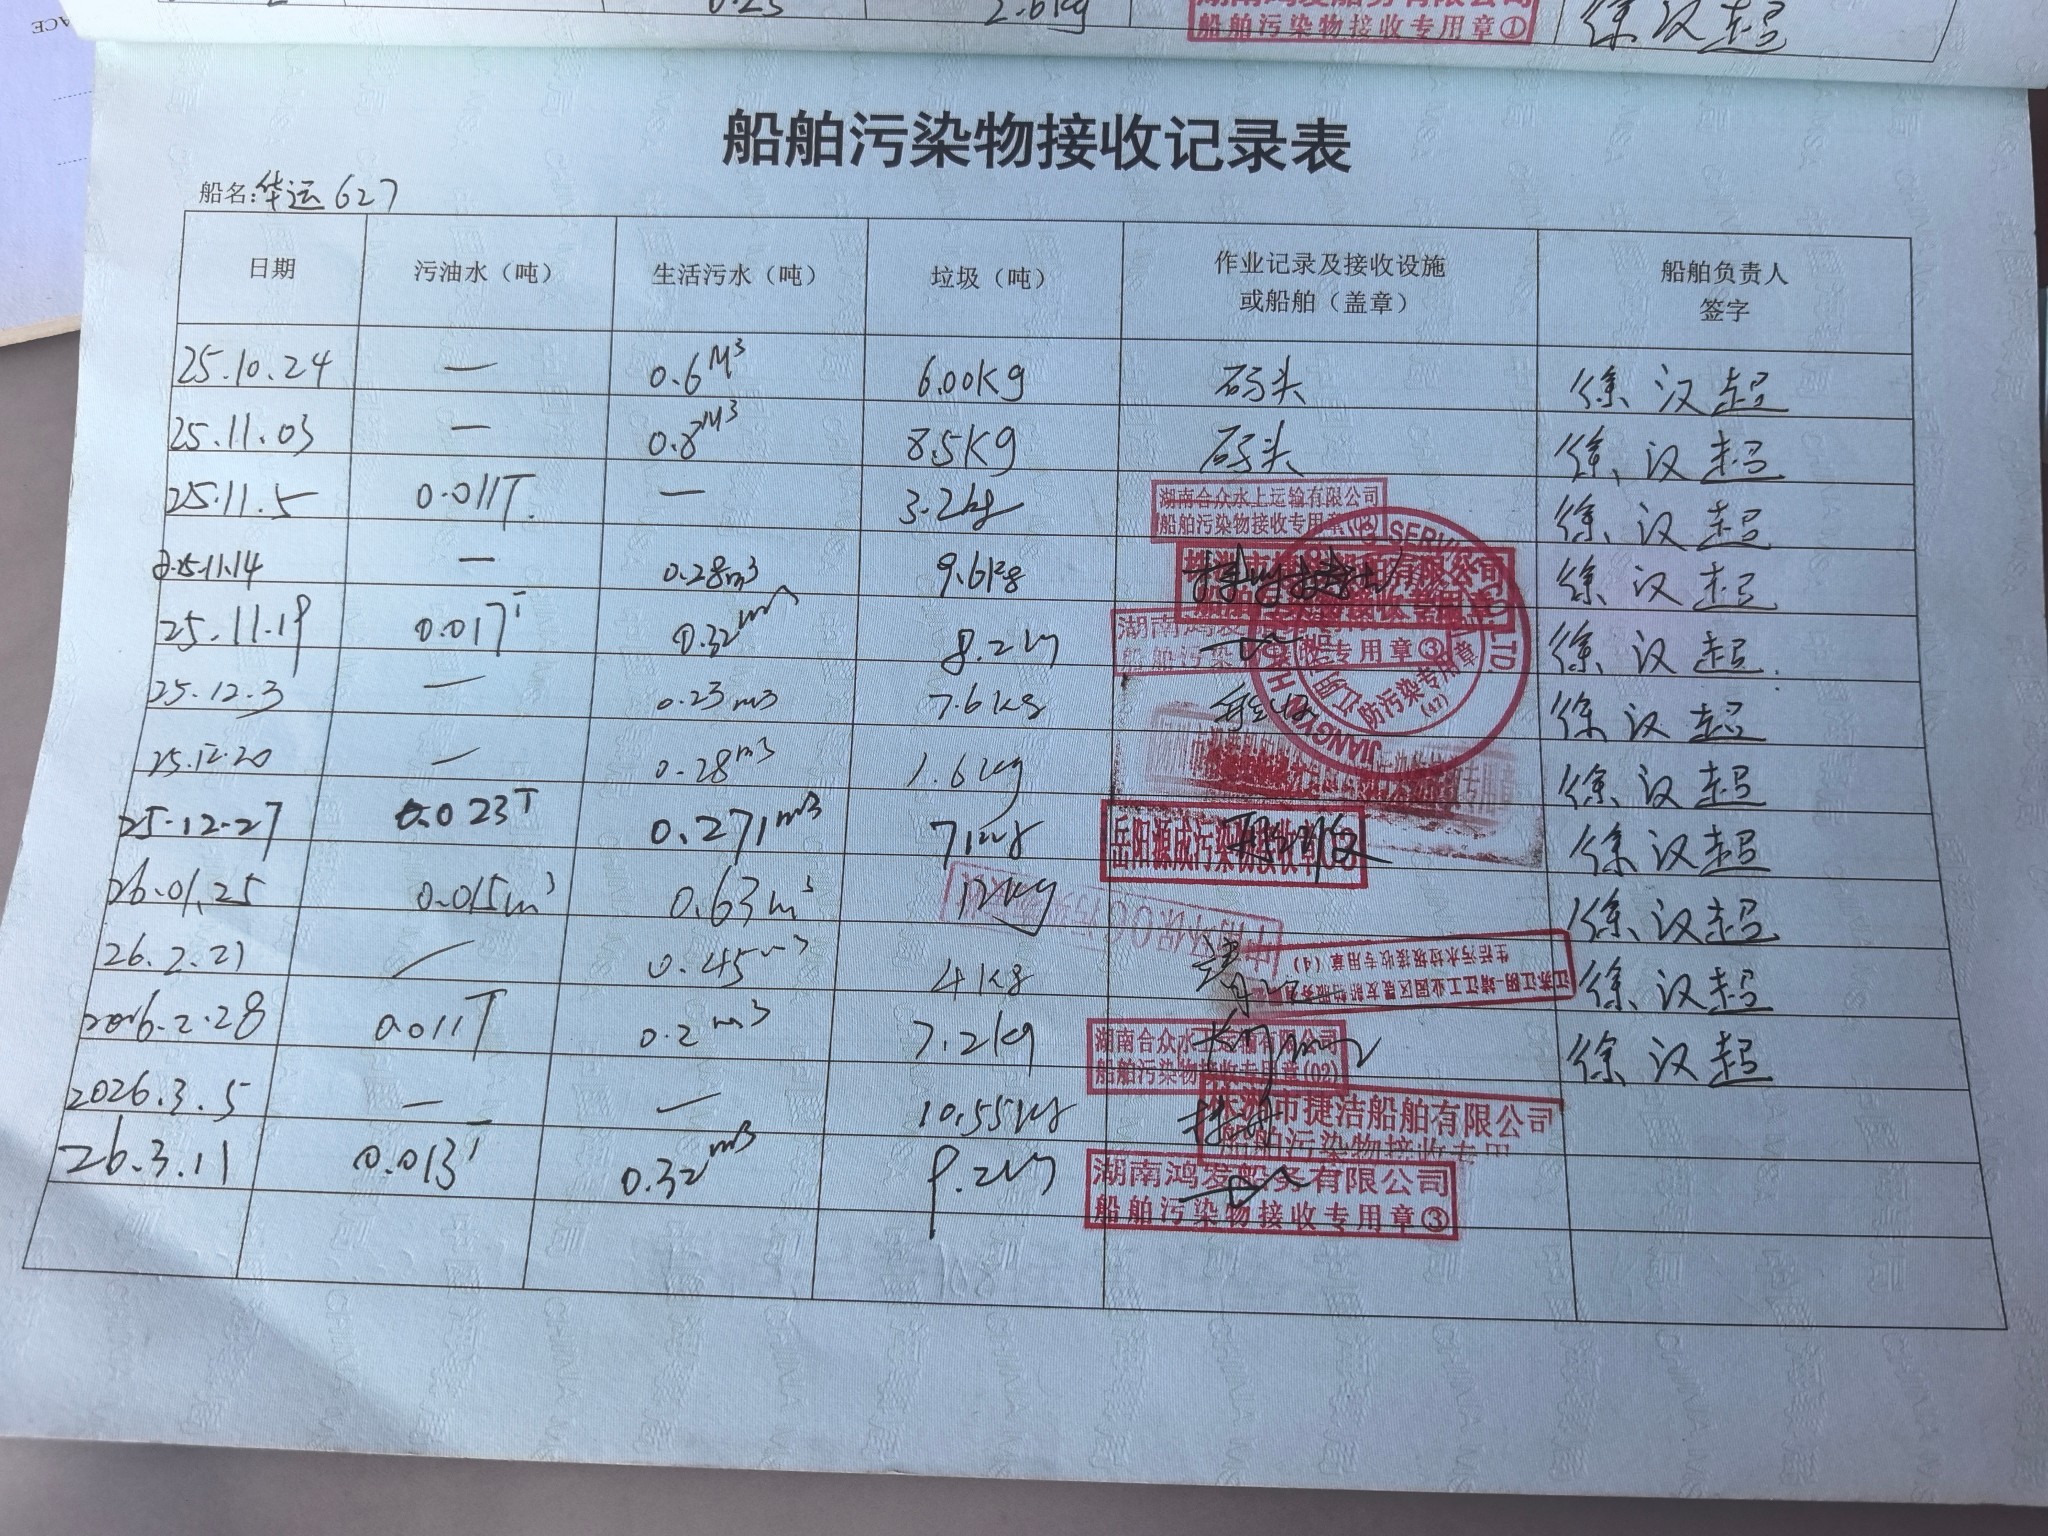 0.25 2.6kg 船舶污染物接收专用章① 徐汉超
船舶污染物接收记录表
船名:华运627
日期 污油水（吨） 生活污水（吨） 垃圾（吨） 作业记录及接收设施或船舶（盖章） 船舶负责人签字
25.10.24 — 0.6M³ 6.00Kg 码头 徐汉超
25.11.03 — 0.8M³ 8.5Kg 码头 徐汉超
25.11.5 0.011T. — 3.2kg 湖南合众水上运输有限公司 船舶污染物接收专用章(02) 徐汉超
25.11.14 — 0.28m³ 9.6kg 徐汉超
25.11.19 0.017T 0.32m³ 8.2kg 湖南鸿发 船舶污染 专用章③ 徐汉超.
25.12.3 — 0.23m³ 7.6kg 防污染专用章 (47) 徐汉超
25.12.20 — 0.28m³ 1.6kg 徐汉超
25.12.27 0.023T 0.271m³ 71kg 岳阳源成污染物接收章 徐汉超
26.01.25 0.015m³ 0.63m³ 12kg 徐汉超
26.2.21 — 0.45m³ 4kg 生活污水垃圾接收专用章（4） 徐汉超
2026.2.28 0.011T 0.2m³ 7.2kg 湖南合众水上运输有限公司 船舶污染物接收专用章(02) 徐汉超
2026.3.5 — — 10.55kg 市捷洁船舶有限公司 船舶污染物接收专用
26.3.11 0.013T 0.32m³ 9.2kg 湖南鸿发船务有限公司 船舶污染物接收专用章③